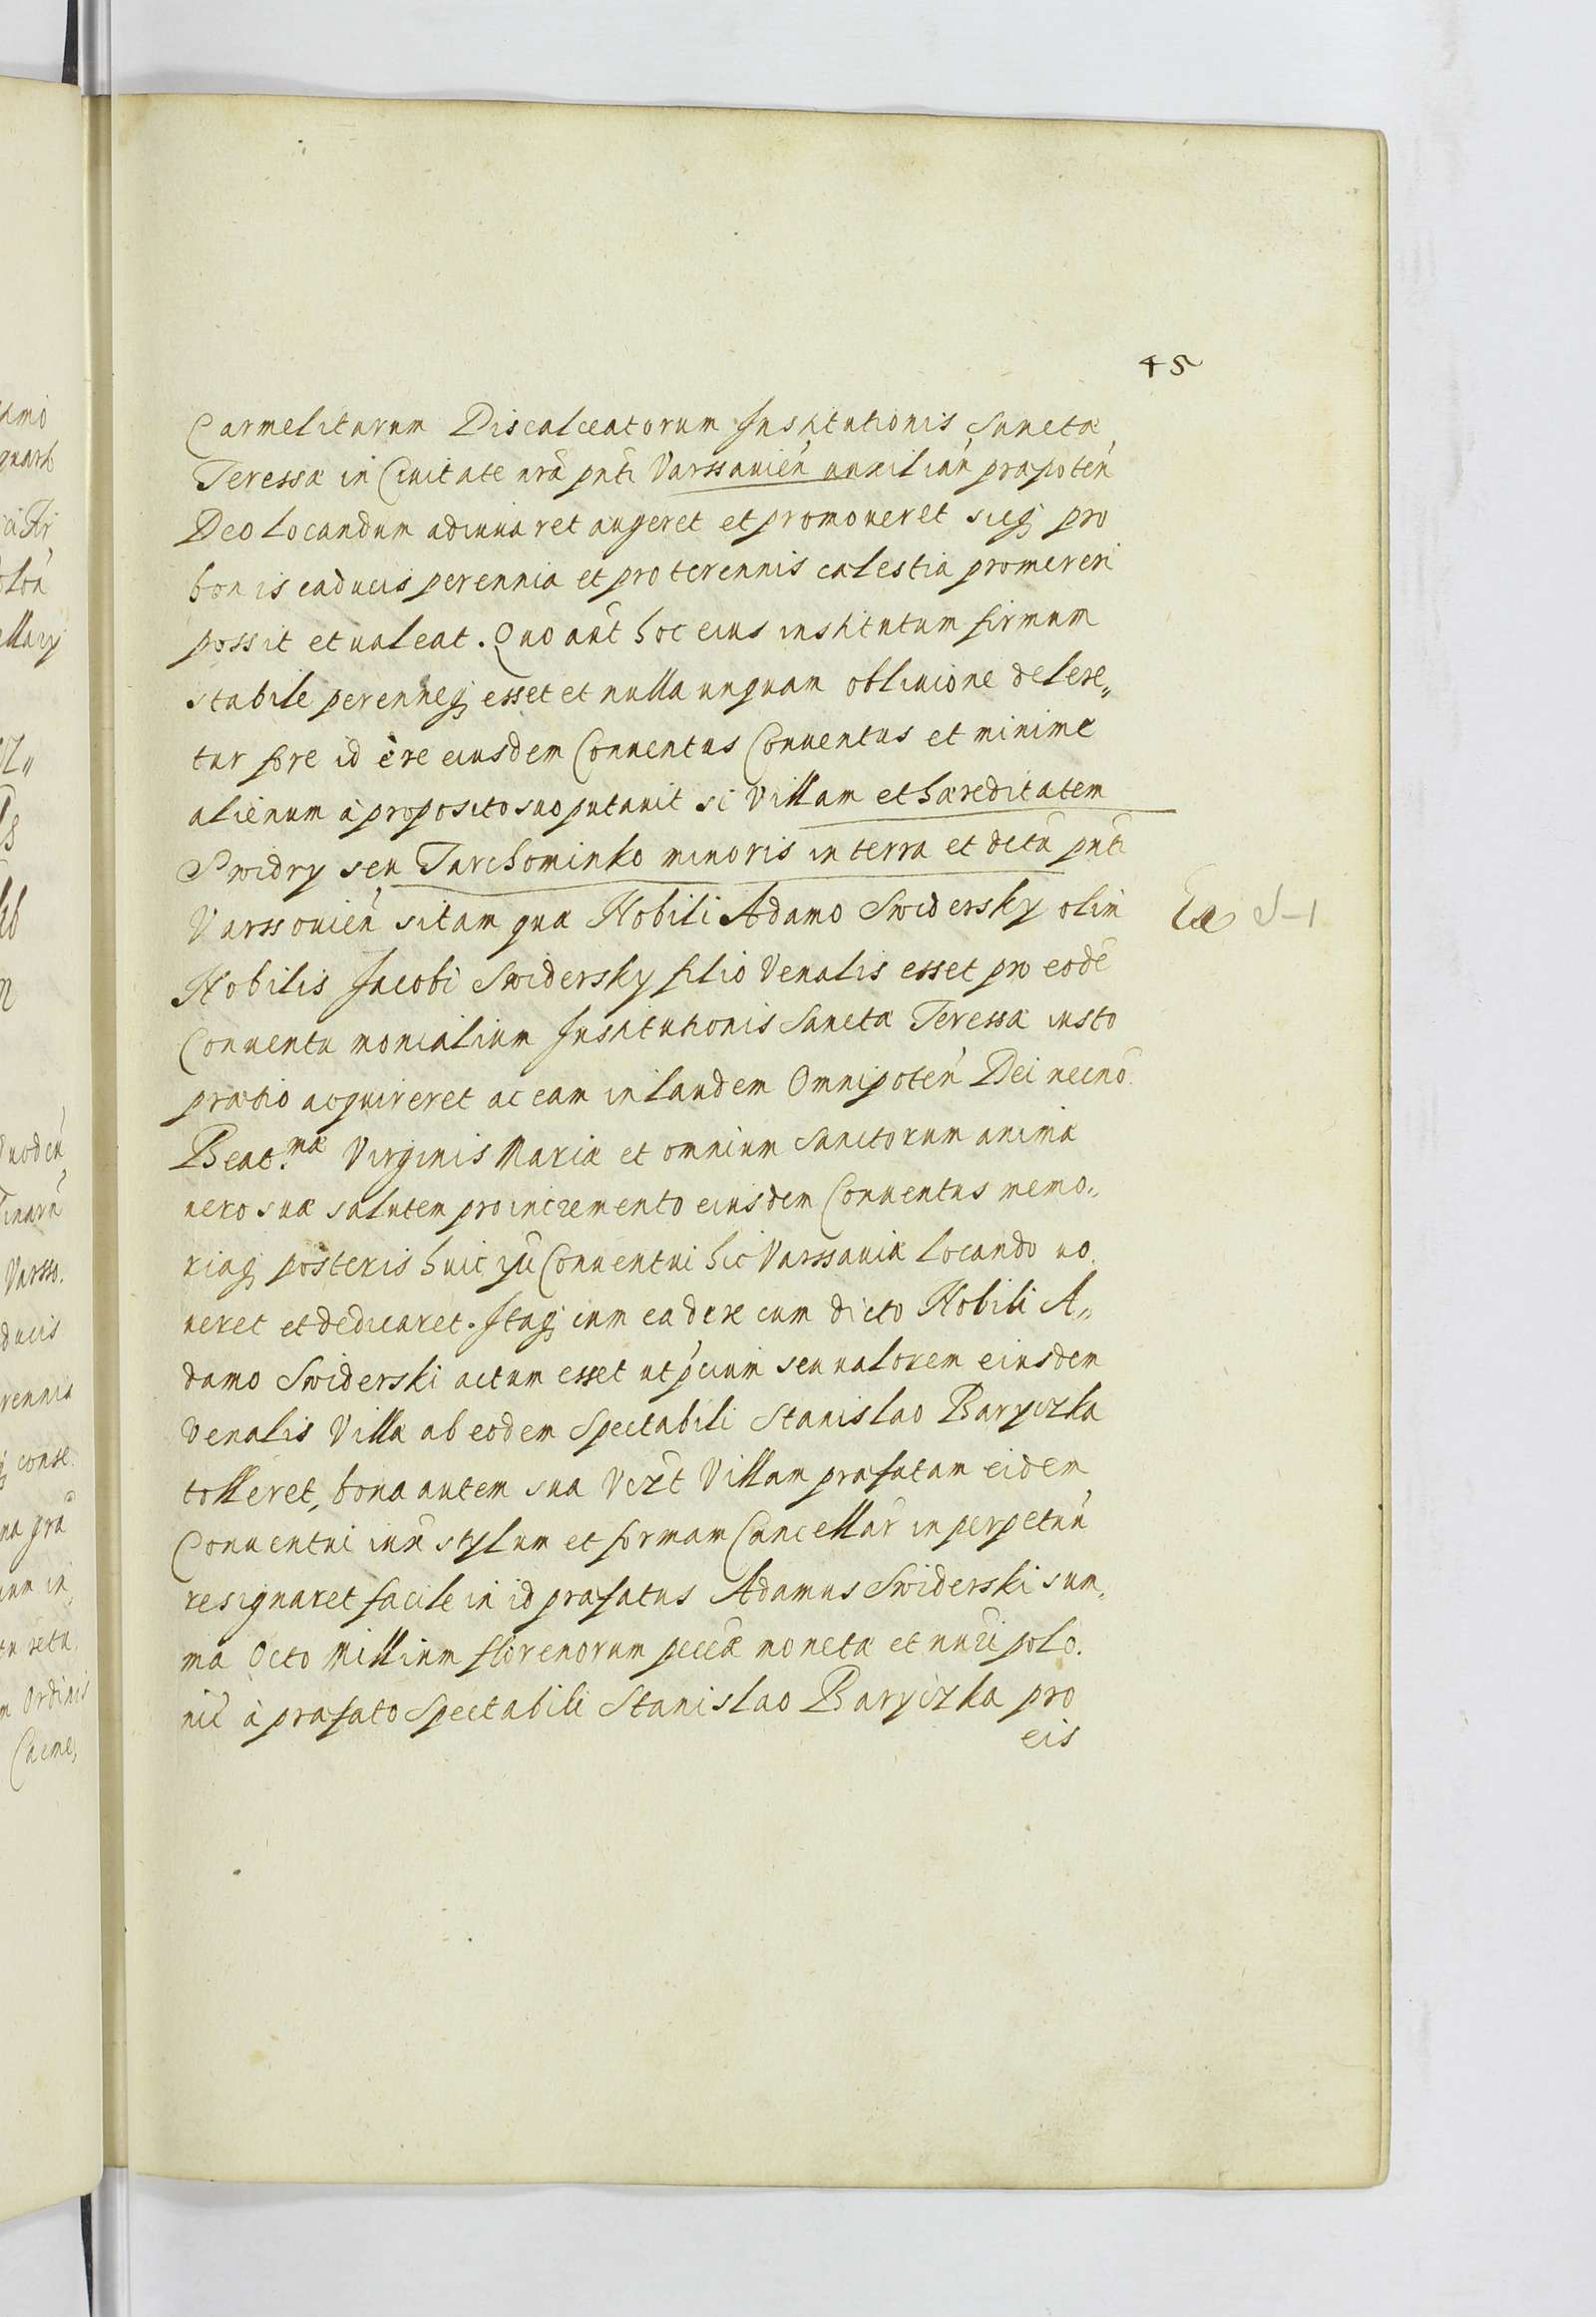 45
Carmelitarum Discalceatorum Institutionis Sanctæ
Teressæ in Civitate nrã pñti Varssavień auxilian̈ præpoteń
Deo locandum adiuuaret augeret et promoueret sicq; pro
bonis caducis perennia et pro terennis cælestia promereri
possit et ualeat. Quo aũt hoc eius institutum firmum
stabile perenneq; esset et nulla unquam obliuione delere„
tur fore id ẽ re eiusdem Conuentus Conuentus et minime
alienum à proposito suo putauit si Villam et hæreditatem
Swidry seu Tarchominko minoris in terra et dictũ pñti
Varssouień sitam quæ Nobili Adamo Swidersky olim
Nobilis Jacobi Swidersky filio Venalis esset pro eodẽ
Conuentu monialium Institutionis Sanctæ Teressæ iusto
prætio acquireret ac eam in laudem Omnipoteń Dei necnõ
Beat.mæ Virginis Mariæ et omnium Sanctorum animæ
uero suæ salutem pro incremento eiusdem Conuentus memo„
riaq; posteris huic Conuentui hic Varssauiæ locando uo.
ueret et dedicaret. Itaq; cum ea de re cum dicto Nobili A„
damo Swiderski actum esset ut p̃cium seu ualorem eiusdem
Venalis Villæ ab eodem Spectabili Stanislao Baryczka
tolleret, bona autem sua Vczt Villam præfatam eidem
Conuentui iux̃ stylum et formam Cancellar̃ in perpetuũ
resignaret facile in id præfatus Adamus Swiderski sum„
ma Octo Millium florenorum pecc̃æ monetæ et nuri polo.
nic̃ à præfato Spectabili Stanislao Baryczka pro
eis